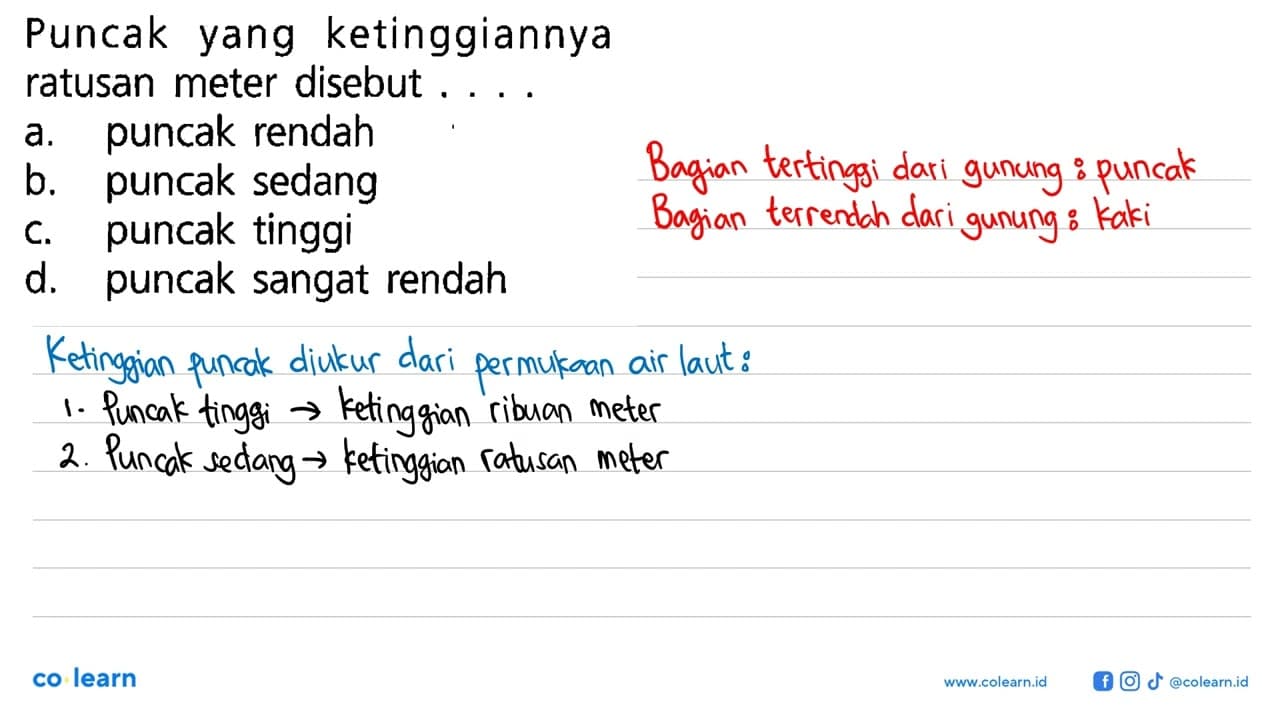 Puncak yang ketinggiannya
ratusan meter disebut . . . .
a. puncak rendah
b. puncak sedang
c. puncak tinggi
d. puncak sangat rendah
Bagian tertinggi dari gunung : puncak
Bagian terrendah dari gunung : kaki
Ketinggian puncak diukur dari permukaan air laut :
1. Puncak tinggi → ketinggian ribuan meter
2. Puncak sedang → ketinggian ratusan meter
co learn
www.colearn.id
@colearn.id